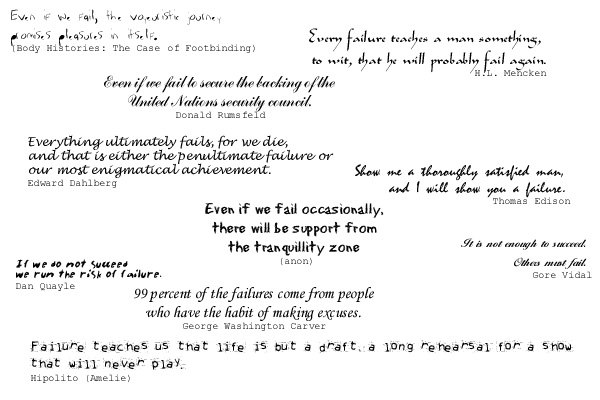 Even if we fail, the voyeuristic journey
promises pleasures in itself.
(Body Histories: The Case of Footbinding)
Every failure teaches a man something,
to wit, that he will probably fail again.
H.L. Mencken
Even if we fail to secure the backing of the
United Nations security council.
Donald Rumsfeld
Everything ultimately fails, for we die,
and that is either the penultimate failure or
our most enigmatical achievement.
Edward Dahlberg
Show me a thoroughly satisfied man,
and I will show you a failure.
Thomas Edison
Even if we fail occasionally,
there will be support from
the tranquillity zone
(anon)
It is not enough to succeed.
Others must fail.
Gore Vidal
If we do not succeed
we run the risk of failure.
Dan Quayle
99 percent of the failures come from people
who have the habit of making excuses.
George Washington Carver
Failure teaches us that life is but a draft, a long rehearsal for a show
that will never play.
Hipolito (Amelie)